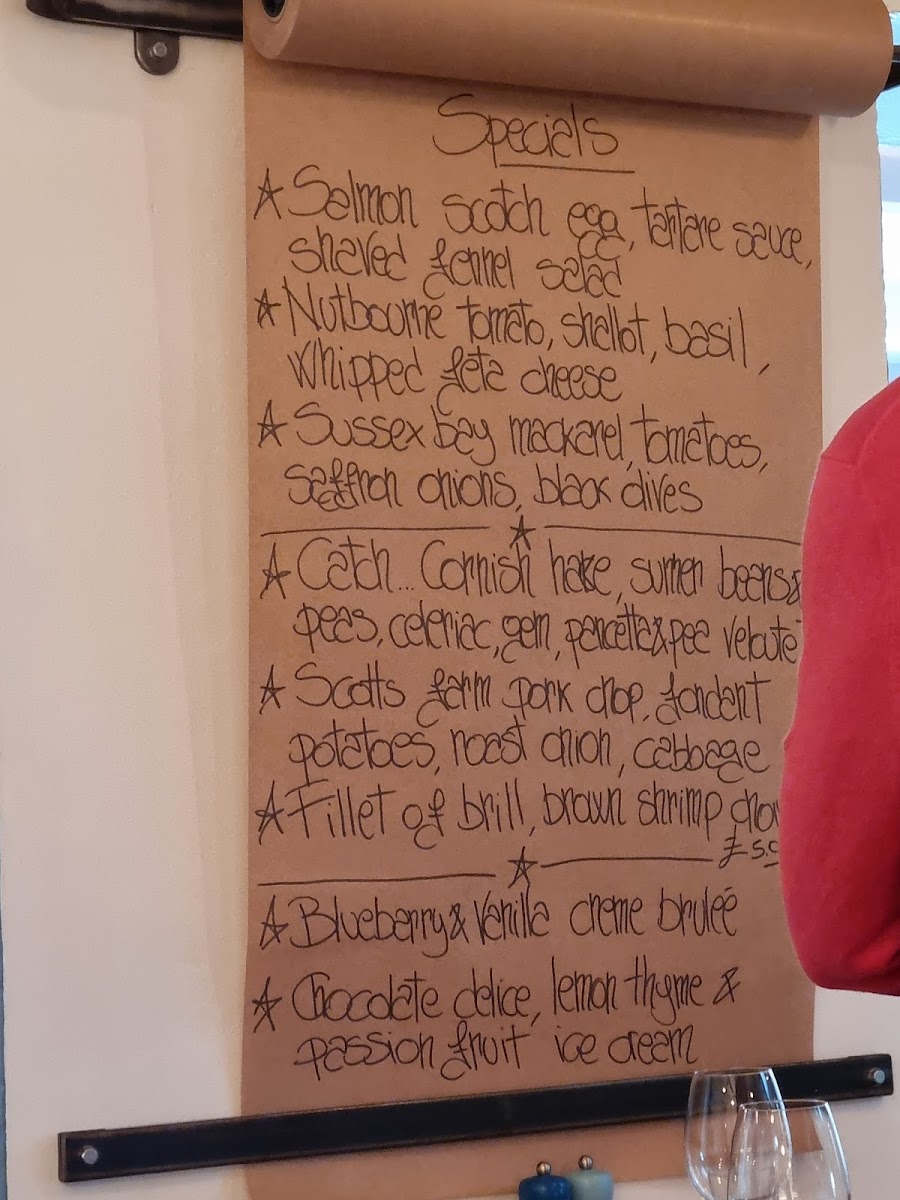 Specials
Salmon scotch egg, tartare sauce,
shaved fennel salad
Nutbourne tomato, shallot, basil,
whipped feta cheese
Sussex bay mackarel, tomatoes,
saffron onions, black olives
Catch... Cornish hake, sumer beans &
peas, celeriac, gem, pancetta & pea velouté
Scotts farm pork chop, fondant
potatoes, roast onion, cabbage
Fillet of brill, brown shrimp
Blueberry & Vanilla creme bruleé
Chocolate delice, lemon thyme &
passion fruit ice cream